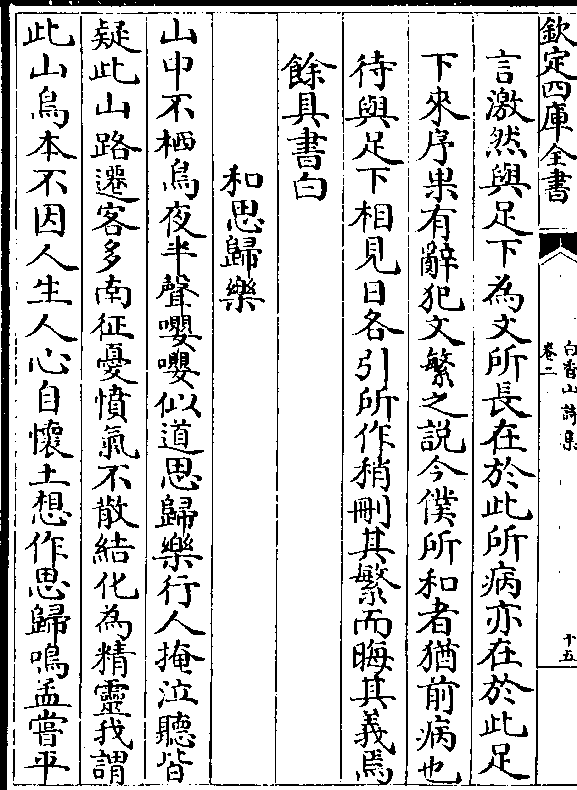 欽定四庫全書
白香山詩集
卷二
十五
言激然與足下為文所長在於此所病亦在於此足
下來序果有辭犯文繁之說今僕所和者猶前病也
待與足下相見日各引所作稍刪其繁而晦其義焉
餘具書白
和思歸樂
山中不栖鳥夜半聲嚶嚶似道思歸樂行人掩泣聽皆
疑此山路遷客多南征憂憤氣不散結化為精靈我謂
此山鳥本不因人生人心自懷土想作思歸鳴孟嘗平